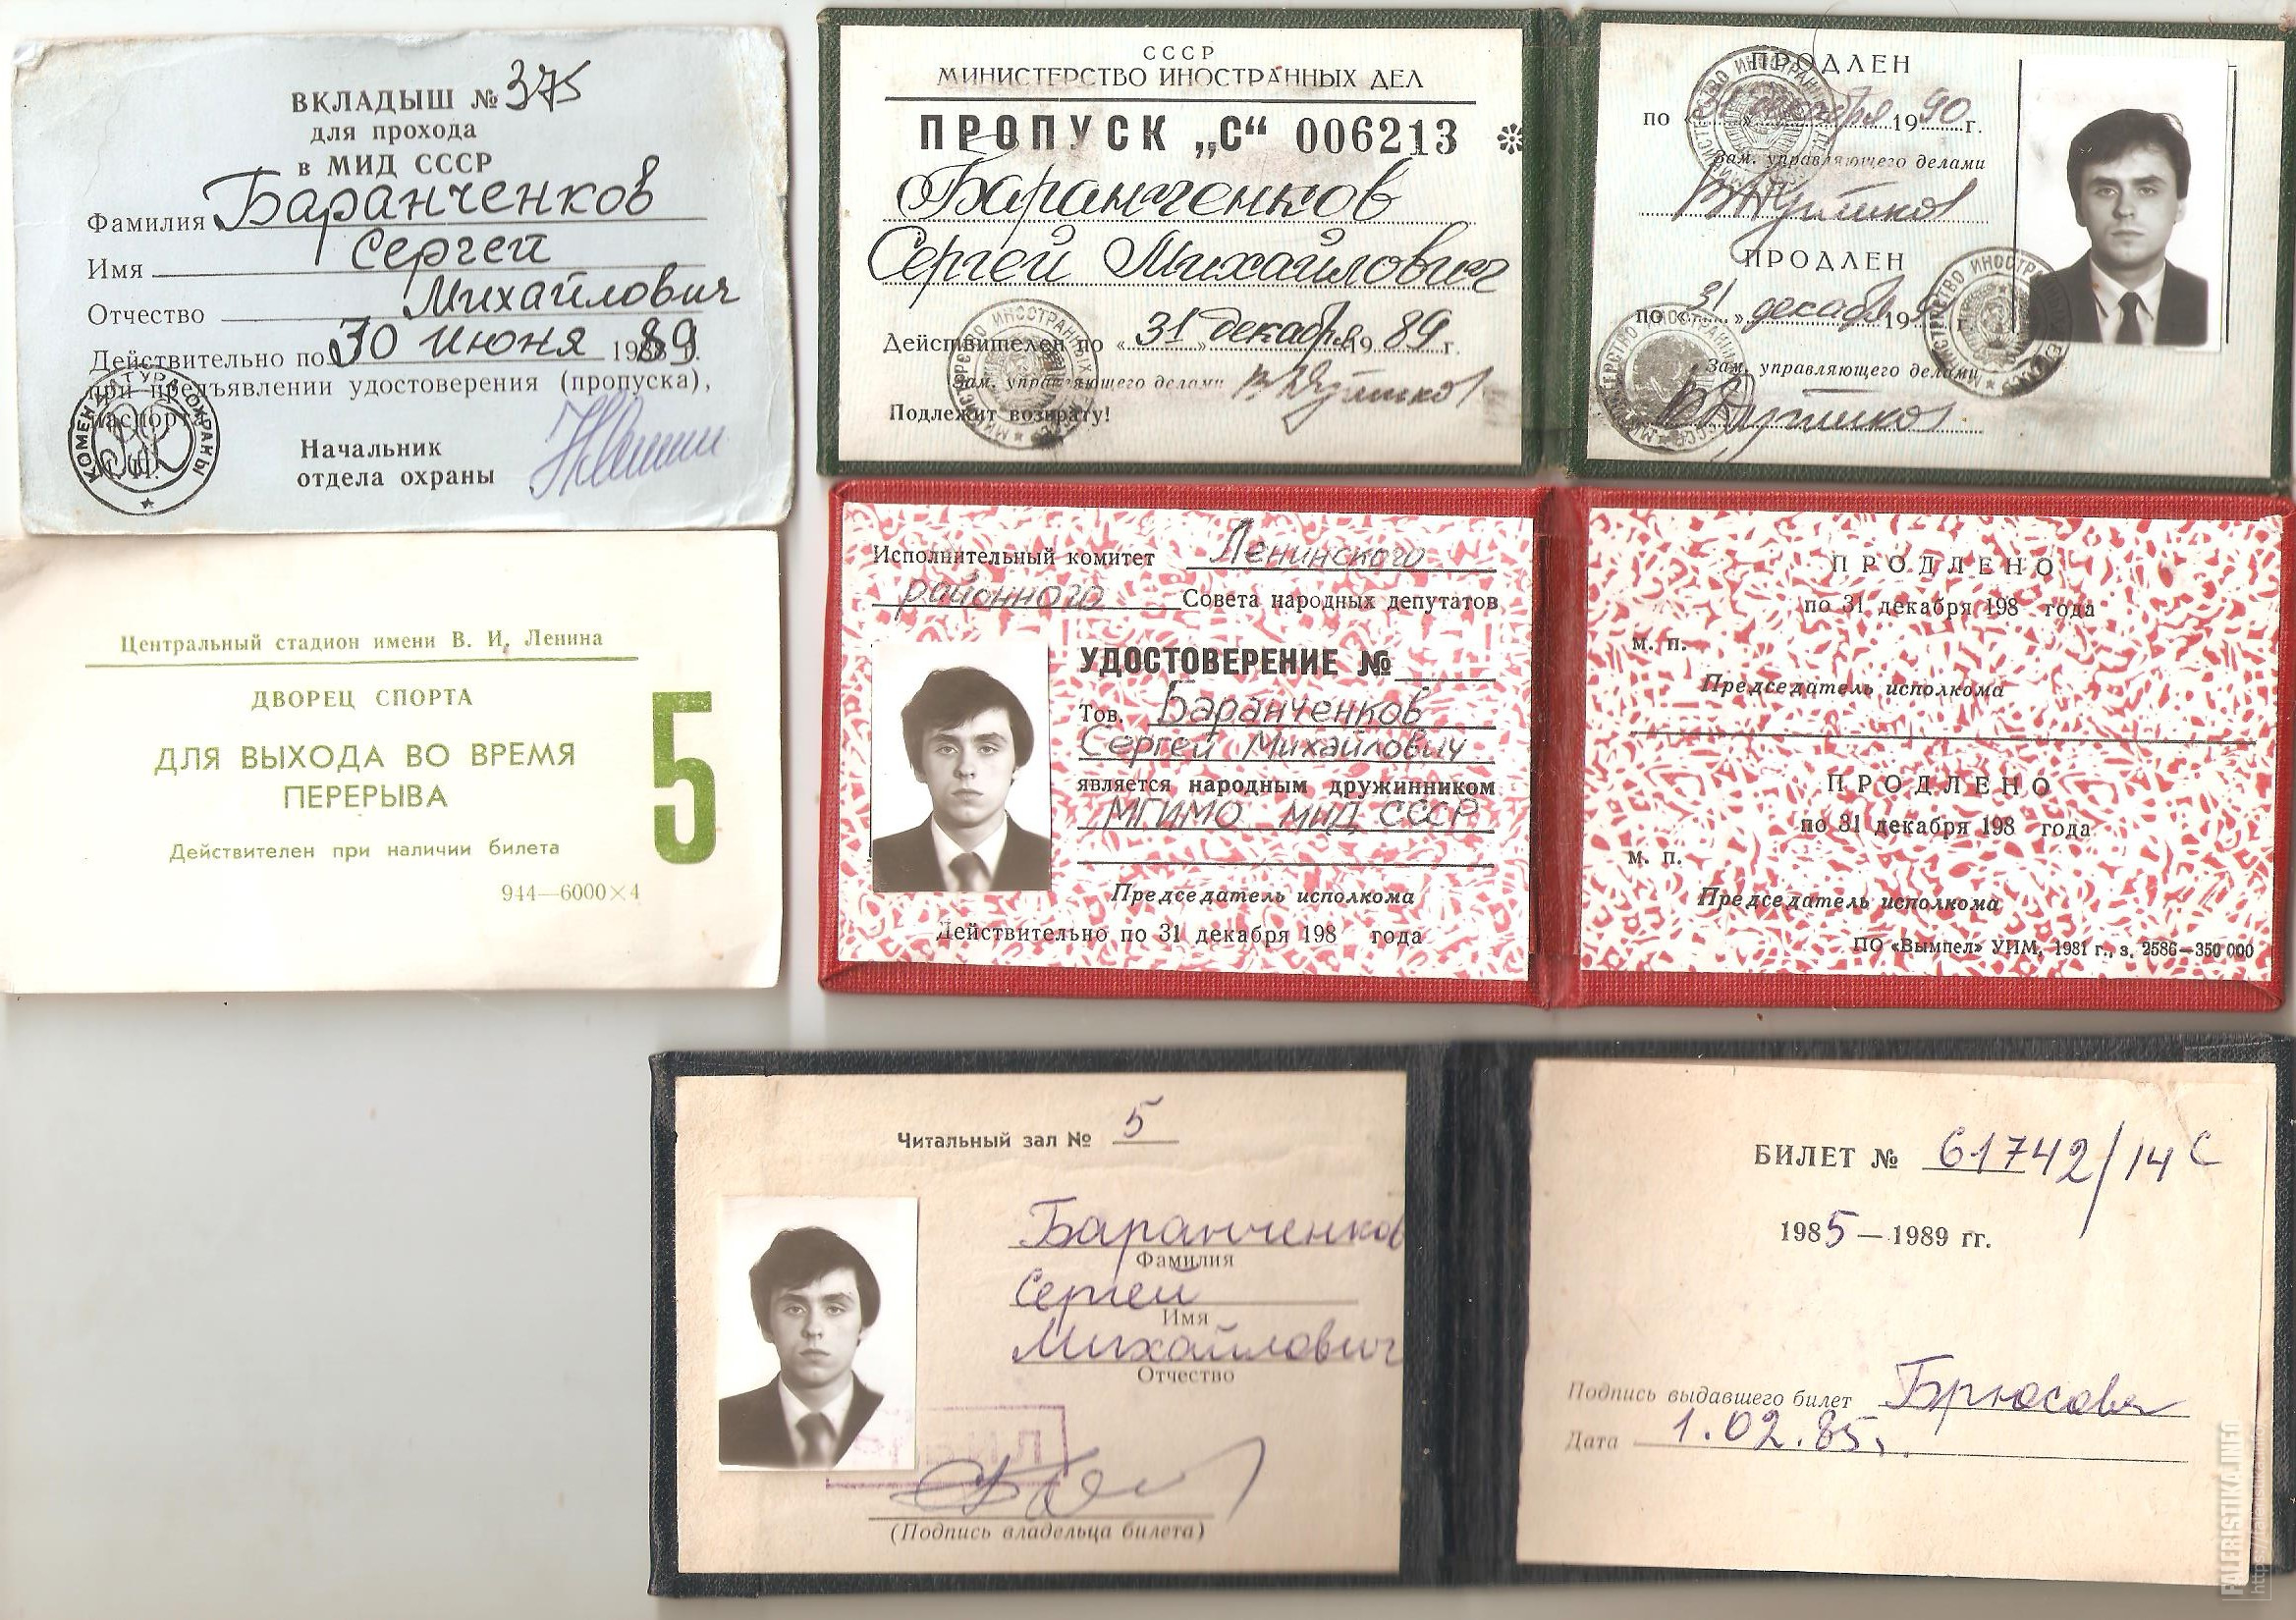 ВКЛАДЫШ № 375
для прохода
в МИД СССР
Фамилия Баранченков
Имя Сергей
Отчество Михайлович
Действительно по 30 июня 1989 г.
при предъявлении удостоверения (пропуска),
паспорта
КОМЕНДАТУРА ОХРАНЫ
Начальник
отдела охраны
СССР
МИНИСТЕРСТВО ИНОСТРАННЫХ ДЕЛ
ПРОПУСК „С“ 006213 *
Баранченков
Сергей Михайлович
Действителен по «31» декабря 1989 г.
Зам. управляющего делами
Подлежит возврату!
ПРОДЛЕН
по «31» декабря 1990 г.
Зам. управляющего делами
ПРОДЛЕН
по «31» декабря 199 г.
Зам. управляющего делами
Центральный стадион имени В. И. Ленина
ДВОРЕЦ СПОРТА
ДЛЯ ВЫХОДА ВО ВРЕМЯ
ПЕРЕРЫВА
5
Действителен при наличии билета
944—6000×4
Исполнительный комитет Ленинского
районного Совета народных депутатов
УДОСТОВЕРЕНИЕ №
Тов. Баранченков
Сергей Михайлович
является народным дружинником
МГИМО МИД СССР
Председатель исполкома
Действительно по 31 декабря 198 года
ПРОДЛЕНО
по 31 декабря 198 года
м. п.
Председатель исполкома
ПРОДЛЕНО
по 31 декабря 198 года
м. п.
Председатель исполкома
ПО «Вымпел» УИМ, 1981 г., з. 2586—350 000
Читальный зал № 5
Баранченков
Фамилия
Сергей
Имя
Михайлович
Отчество
(Подпись владельца билета)
БИЛЕТ № 61742/14 С
1985 — 1989 гг.
Подпись выдавшего билет Брюсова
Дата 1.02.85.
FALERISTIKA.INFO